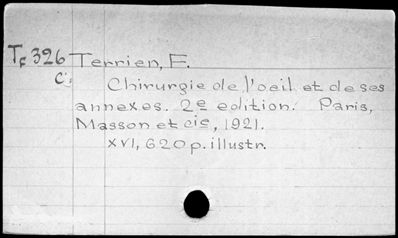 Tc 326 Terrien, F.
Cj Chirurgie de l'oeil et de ses
annexes. 2e edition. Paris,
Masson et cie, 1921.
XVI, 620 p. illustr.